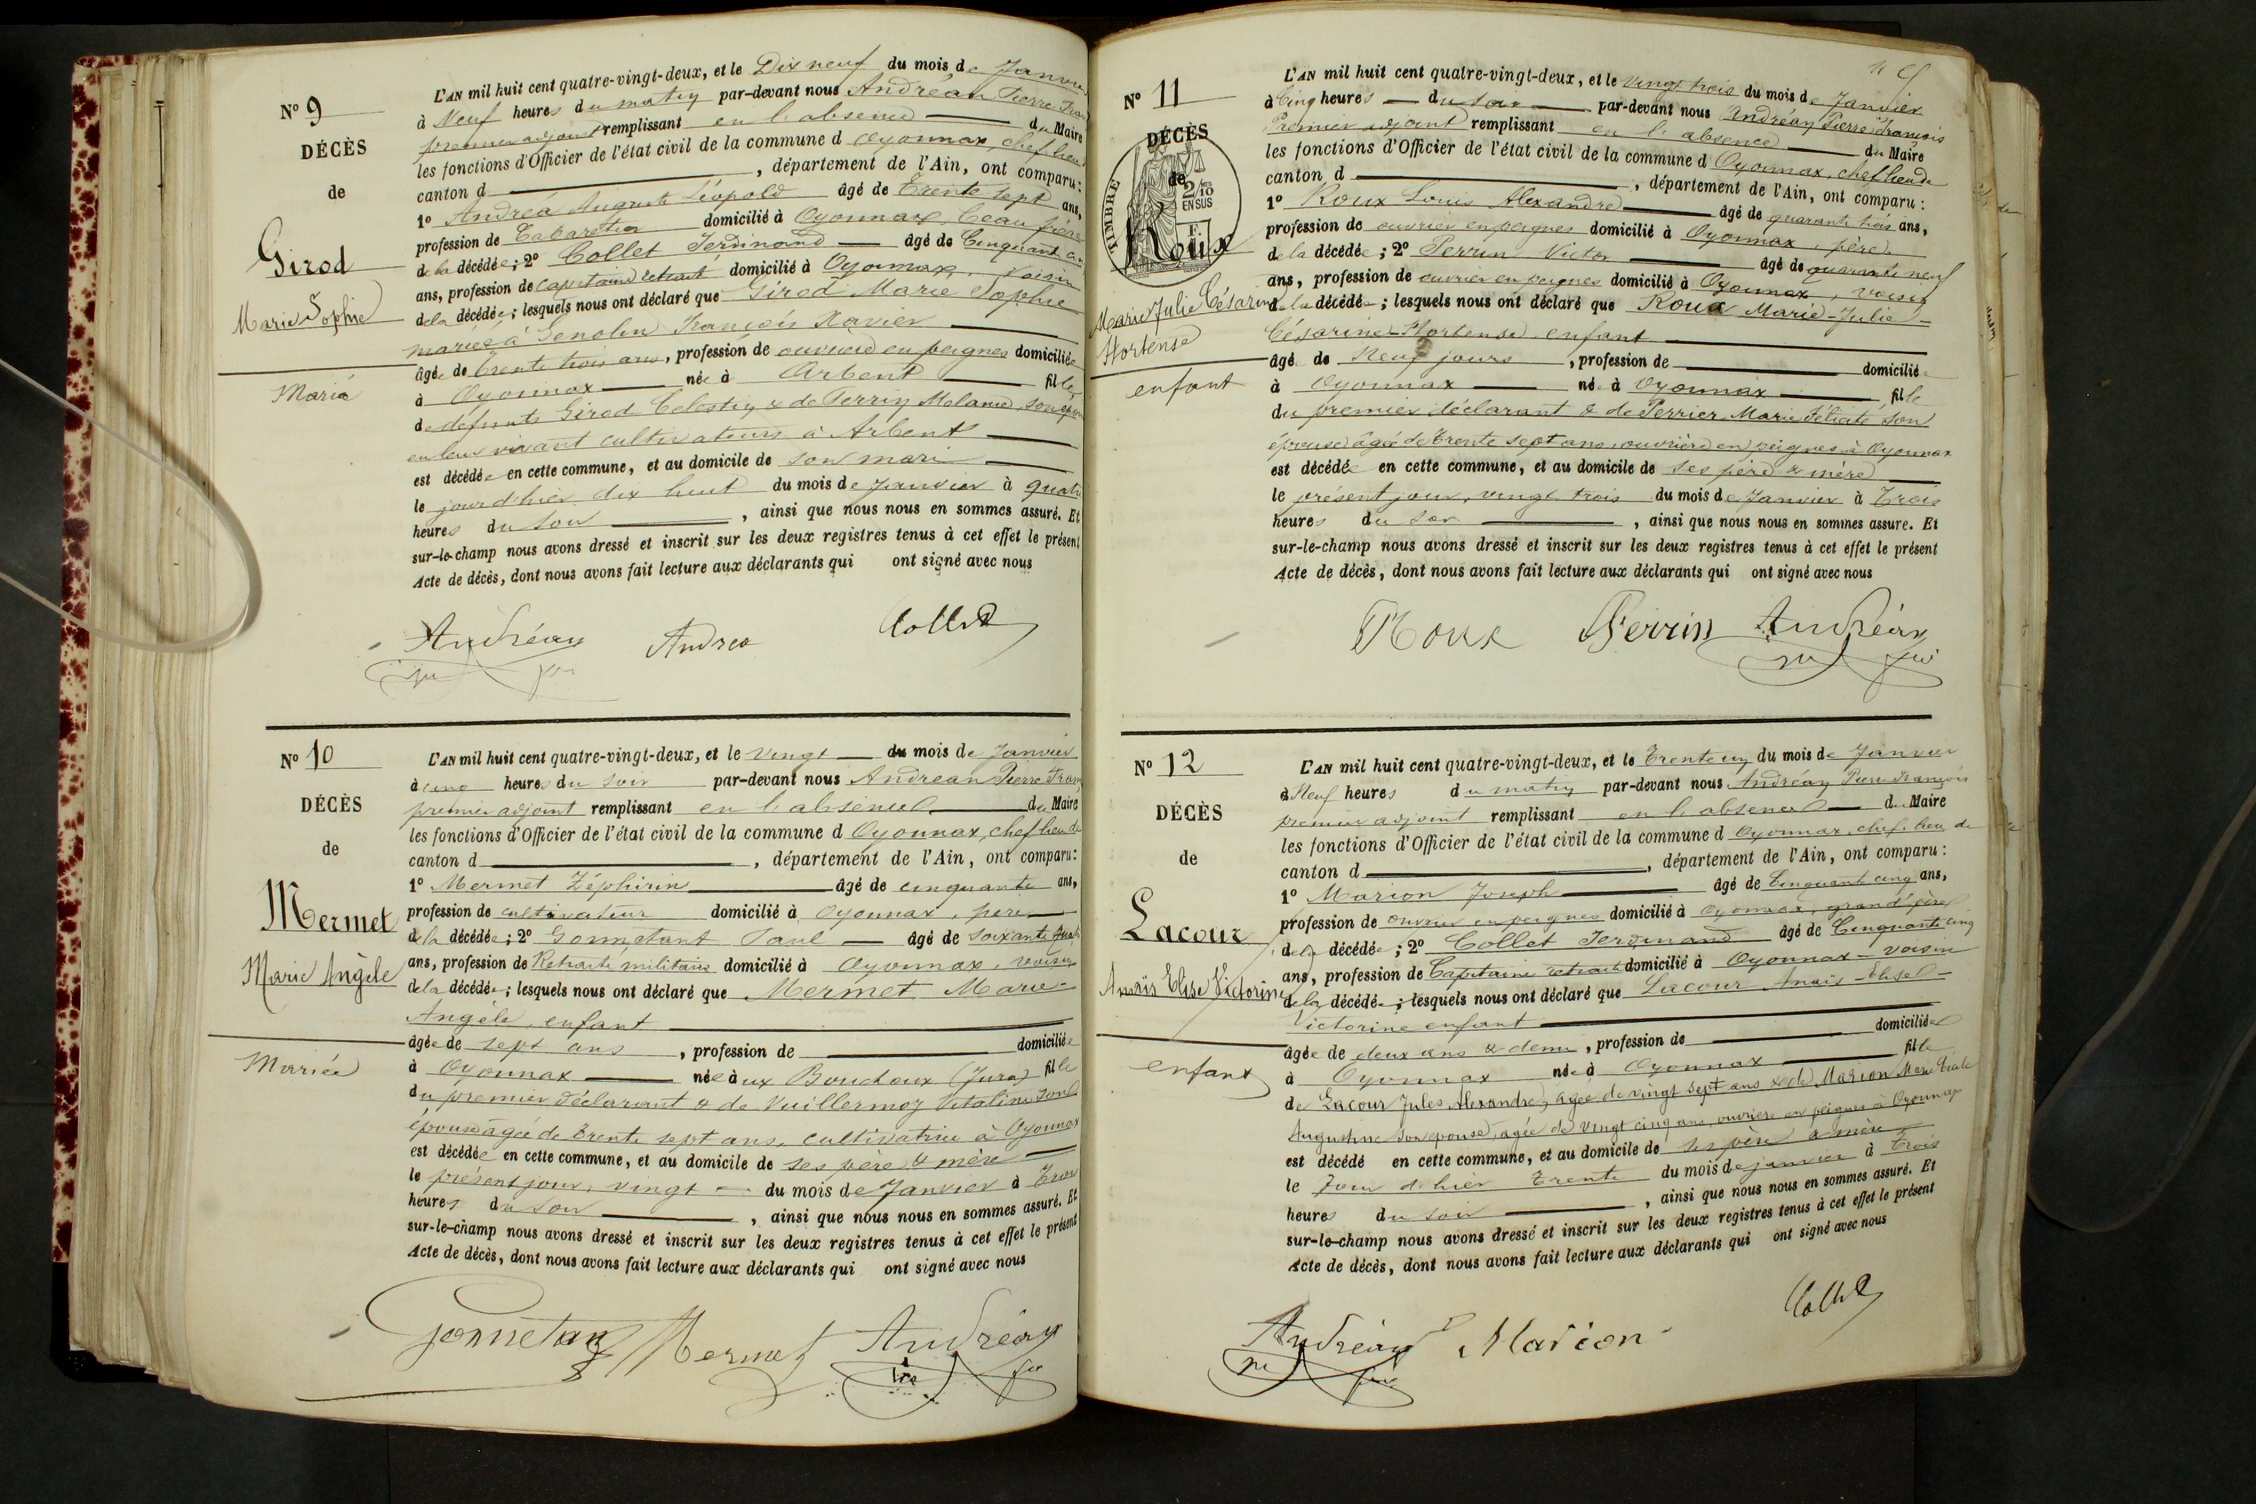 N° 9
DÉCÈS
de
Girod
Marie Sophie
Marié
L'AN mil huit cent quatre-vingt-deux, et le Dix neuf du mois de Janvier
à Neuf heures du matin par-devant nous Andréan Pierre Fran
premier adjoint remplissant en l'absence du Maire
les fonctions d'Officier de l'état civil de la commune d Oyonnax, chef lieu
canton d , département de l'Ain, ont comparu:
1° Andréa Auguste Léopold âgé de Trente sept ans,
profession de Cabaretier domicilié à Oyonnax, beau frère
de la décédée; 2° Collet Ferdinand âgé de Cinquante
ans, profession de capitaine retraité domicilié à Oyonnax, voisin
de la décédée; lesquels nous ont déclaré que Girod Marie Sophie
mariée à Genolin François Xavier
âgée de Trente trois ans, profession de ouvrière en peignes domiciliée
à Oyonnax née à Arbent fille
de défunts Girod Celestin & de Perrin Melanie, son
en leur vivant cultivateurs à Arbent
est décédée en cette commune, et au domicile de son mari
le jour d'hier dix huit du mois de Janvier à quatre
heures du soir , ainsi que nous nous en sommes assuré. Et
sur-le-champ nous avons dressé et inscrit sur les deux registres tenus à cet effet le présent
Acte de décès, dont nous avons fait lecture aux déclarants qui ont signé avec nous
Andréan Andrea Collet
N° 10
DÉCÈS
de
Mermet
Marie Angèle
Mariée
L'AN mil huit cent quatre-vingt-deux, et le vingt du mois de Janvier
à cinq heures du soir par-devant nous Andréan Pierre Fran
premier adjoint remplissant en l'absence du Maire
les fonctions d'Officier de l'état civil de la commune d Oyonnax, chef lieu de
canton d , département de l'Ain, ont comparu:
1° Mermet Zéphirin âgé de cinquante ans,
profession de cultivateur domicilié à Oyonnax, père
de la décédée; 2° Gonnetant Paul âgé de soixante
ans, profession de Retraité militaire domicilié à Oyonnax, voisin
de la décédée; lesquels nous ont déclaré que Mermet Marie-
Angèle, enfant
âgée de sept ans , profession de domiciliée
à Oyonnax née aux Bouchoux (Jura) fille
du premier déclarant & de Vuillermoz Vitaline son
épouse âgée de trente sept ans, cultivatrice à Oyonnax
est décédée en cette commune, et au domicile de ses père & mère
le présent jour, vingt du mois de Janvier à Trois
heures du soir , ainsi que nous nous en sommes assuré. Et
sur-le-champ nous avons dressé et inscrit sur les deux registres tenus à cet effet le présent
Acte de décès, dont nous avons fait lecture aux déclarants qui ont signé avec nous
Gonnetant Mermet Andréan
N° 11
DÉCÈS
de
TIMBRE
2/10
EN SUS
Roux
Marie Julie Césarine
Hortense
enfant
L'AN mil huit cent quatre-vingt-deux, et le vingt trois du mois de Janvier
à Cinq heures du soir par-devant nous Andréan Pierre François
Premier adjoint remplissant en l'absence du Maire
les fonctions d'Officier de l'état civil de la commune d Oyonnax, chef lieu de
canton d , département de l'Ain, ont comparu:
1° Roux Louis Alexandre âgé de quarante trois ans,
profession de ouvrier en peignes domicilié à Oyonnax, père
de la décédée; 2° Perrin Victor âgé de quarante neuf
ans, profession de ouvrier en peignes domicilié à Oyonnax, voisin
de la décédée; lesquels nous ont déclaré que Roux Marie-Julie-
Césarine-Hortense, enfant
âgé de Neuf jours , profession de domicilié
à Oyonnax née à Oyonnax fille
du premier déclarant & de Perrier Marie Félicité son
épouse, âgée de Trente sept ans, ouvrière en peignes à Oyonnax
est décédée en cette commune, et au domicile de ses père & mère
le présent jour, vingt trois du mois de Janvier à Trois
heures du soir , ainsi que nous nous en sommes assuré. Et
sur-le-champ nous avons dressé et inscrit sur les deux registres tenus à cet effet le présent
Acte de décès, dont nous avons fait lecture aux déclarants qui ont signé avec nous
Roux Perrin Andréan
N° 12
DÉCÈS
de
Lacour
Anaïs Elise Victorine
enfant
L'AN mil huit cent quatre-vingt-deux, et le Trente un du mois de Janvier
à Neuf heures du matin par-devant nous Andréan Pierre François
premier adjoint remplissant en l'absence du Maire
les fonctions d'Officier de l'état civil de la commune d Oyonnax, chef-lieu de
canton d , département de l'Ain, ont comparu:
1° Marion Joseph âgé de Cinquante cinq ans,
profession de ouvrier en peignes domicilié à Oyonnax, grand'père
de la décédée; 2° Collet Ferdinand âgé de Cinquante cinq
ans, profession de Capitaine retraité domicilié à Oyonnax - voisin
de la décédée; lesquels nous ont déclaré que Lacour Anaïs Elise-
Victorine enfant
âgée de deux ans & demi , profession de domiciliée
à Oyonnax née à Oyonnax fille
de Lacour Jules Alexandre, âgé de vingt sept ans & de Marion Marie
Augustine son épouse, âgée de vingt cinq ans, ouvrière en peignes à Oyonnax
est décédé en cette commune, et au domicile de ses père & mère
le Jour d'hier Trente du mois de janvier à Trois
heures du soir , ainsi que nous nous en sommes assuré. Et
sur-le-champ nous avons dressé et inscrit sur les deux registres tenus à cet effet le présent
Acte de décès, dont nous avons fait lecture aux déclarants qui ont signé avec nous
Andréan Marion Collet